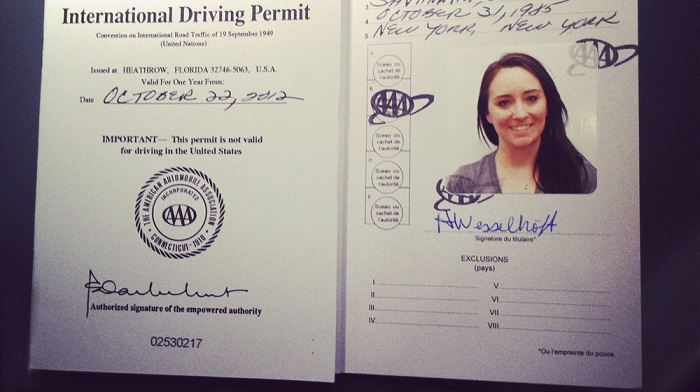 International Driving Permit
Convention on International Road Traffic of 19 September 1949
(United Nations)
Issued at HEATHROW, FLORIDA 32746-5063, U.S.A.
Valid For One Year From:
Date OCTOBER 22, 2012
IMPORTANT— This permit is not valid
for driving in the United States
THE AMERICAN AUTOMOBILE ASSOCIATION
INCORPORATED
AAA
CONNECTICUT-1910
Authorized signature of the empowered authority
02530217
3.
4. OCTOBER 31, 1985
5. NEW YORK, NEW YORK
A
Sceau ou
cachet de
l'autorité
B
AAA
AAA
Sceau ou
cachet de
l'autorité
D
Sceau ou
cachet de
l'autorité
E
Sceau ou
cachet de
l'autorité
HWesselhöft
Signature du titulaire*
EXCLUSIONS
(pays)
I
II
III
IV
V
VI
VII
VIII
*Ou l'empreinte du pouce.